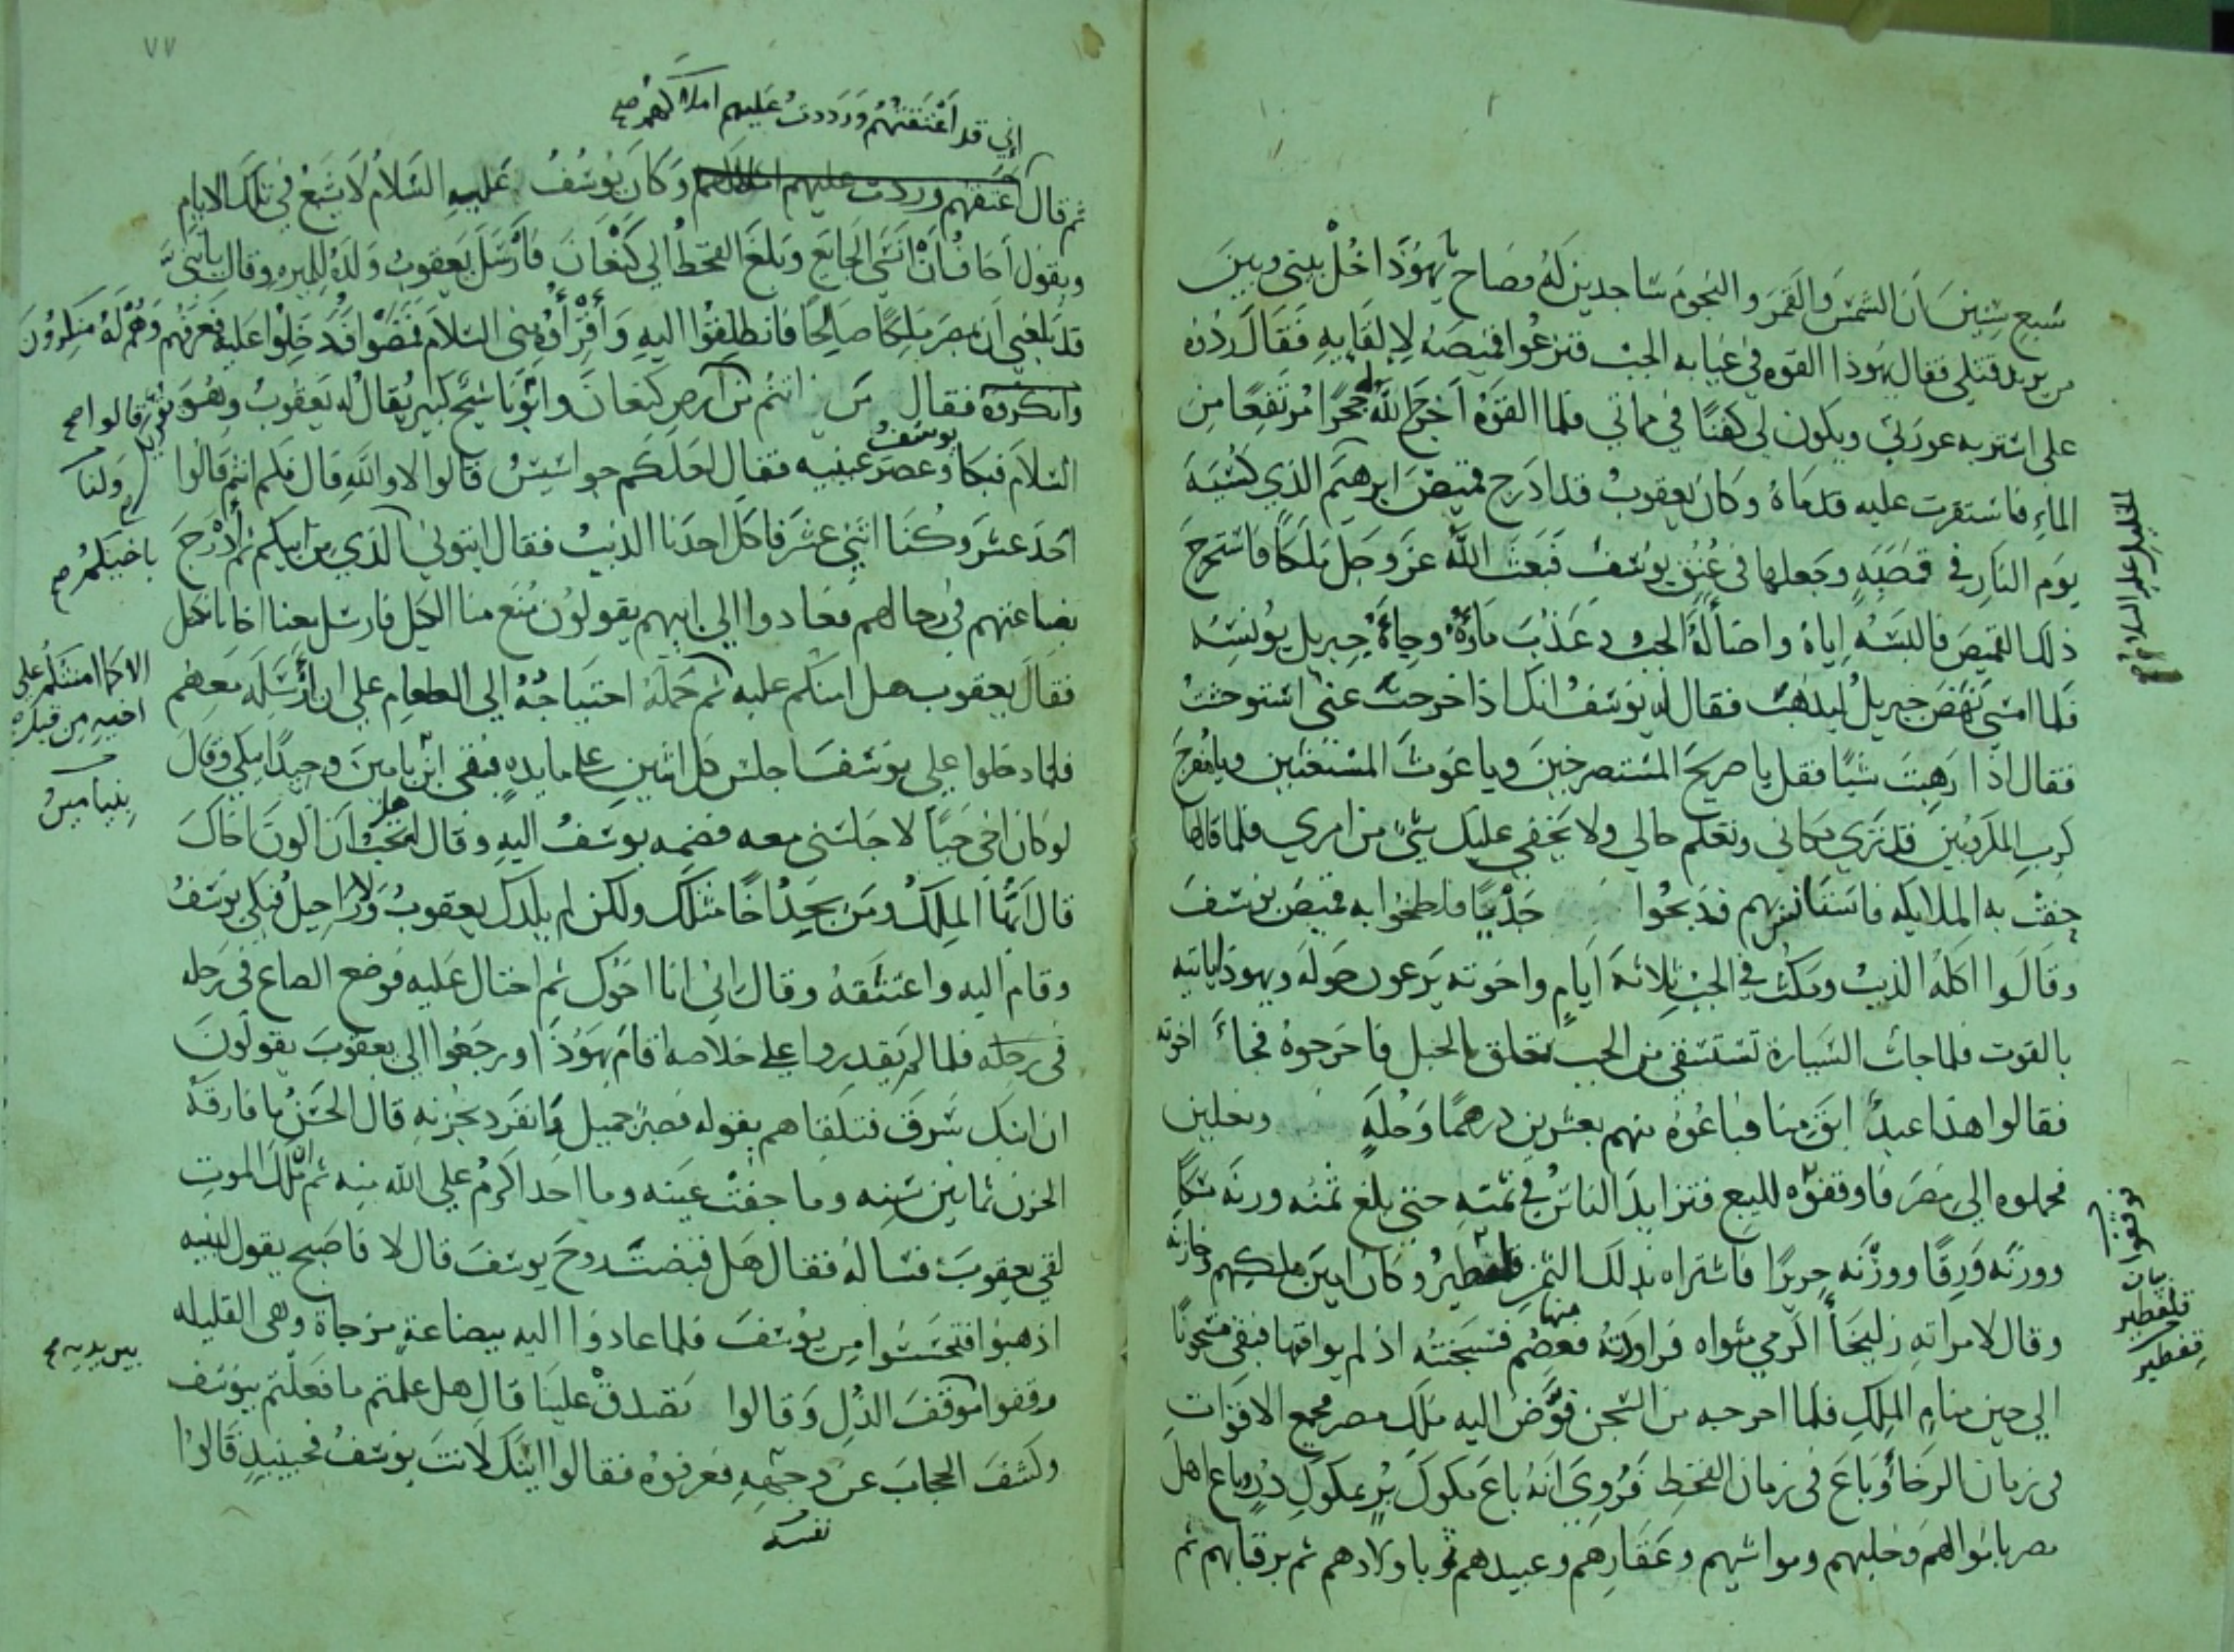 سبع سنين ان الشمس والقمر والنجوم ساجدين له فصاح يا يهوذا خل بيني وبين
من يريد قتلي فقال يهوذا القوه في غيابه الجب فنزعوا قميصه لالقايه فقال ردوه
علي استر به عورتي ويكون لي كفنا في مماتي فلما القوه اخرج الله له حجرا مرتفعا من
الماء فاستقرت عليه قدماه وكان يعقوب قد ادرج قميص ابرهيم الذي كسيه
الخليل عليه السلام
يوم النار في قصبه وجعلها في عنق يوسف فبعث الله عز وجل ملكا فاستخرج
ذلك القميص فالبسه اياه واضاله الجب وعذب ماؤه وجاه جبريل يونسه
فلما امسي نهض جبريل ليذهب فقال له يوسف انك اذا خرجت عني استوحشت
فقال اذا رهبت شيا فقل يا صريخ المستصرخين ويا غوث المستغيثين ويا مفرج
كرب المكروبين قد تري مكاني وتعلم حالي ولا يخفي عليك شي من امري فلما قالها
حفت به الملايكه فاستانس بهم فذبحوا جديا فلطخوا به قميص يوسف
وقالوا اكله الذيب ومكث في الجب ثلاثه ايام واخوته يرعون حوله ويهوذا ياتيه
بالقوت فلما جات السيارة تستسقي من الجب تعلق بالحبل فاخرجوه فجاء اخوته
فقالوا هذا عبد ابق منا فباعوه منهم بعشرين درهما وحله ونعلين
فحملوه الي مصر فاوقفوه للبيع فتزايد الناس في ثمنه حتي بلغ ثمنه وزنه مسكا
ووزنه ورقا ووزنه حريرا فاشتراه بذلك الثمن قطفير وكان امين ملكهم وخازنه
وقال لامراته زليخا اكرمي مثواه فراودته فعصم منها فسجنته اذ لم يوافقها فبقي مسجونا
الي حين منام الملك فلما اخرجه من السجن فوض اليه ملك مصر فجمع الاقوات
في زمان الرخا وباع في زمان القحط فروي انه باع مكوك بر بمكوك در وباع اهل
مصر باموالهم وحليهم ومواشيهم وعقارهم وعبيدهم ثم باولادهم ثم برقابهم ثم
وقفوا
بيان
قطفير
٧٧
اني قد اعتقتهم ورددت عليهم املاكهم صح
ثم قال اعتقهم ورددت عليهم املاكهم وكان يوسف عليه السلام لا يشبع في تلك الايام
ويقول اخاف ان انسي الجايع وبلغ القحط الي كنعان فارسل يعقوب ولده للميره وقال يا بني
قد بلغني ان بمصر ملكا صالحا فانطلقوا اليه واقرؤه مني السلام فمضوا فدخلوا عليه فعرفهم وهم له منكرون
وانكروه فقال من انتم من ارض كنعان وابونا شيخ كبير يقال له يعقوب وهو يقريك
قالوا صح
السلام فبكا وعصر يوسف عينيه فقال لعلكم جواسيس قالوا لا والله قال فكم انتم قالوا
ولنا
احد عشر وكنا اثني عشر فاكل احدنا الذيب فقال ايتوني الذي من ابيكم ثم ادرج
باخيكم صح
بضاعتهم في رحالهم فعادوا الي ابيهم يقولون منع منا الكيل فارسل معنا اخانا نكتل
فقال يعقوب هل امنكم عليه ثم حمله احتياجه الي الطعام علي ان ارسله معهم
الا كما امنتكم علي
اخيه من قبل صح
فلما دخلوا علي يوسف اجلس كل اثنين علي مايده فبقي ابن يامين وحيدا يبكي وقال
بنيامين
لو كان اخي حيا لاجلسني معه فضمه يوسف اليه وقال هل تحب ان اكون اخاك
قال ايها الملك ومن يجد اخا مثلك ولكن لم يلدك يعقوب ولا راحيل فبكي يوسف
وقام اليه واعتنقه وقال اني انا اخوك ثم احتال عليه فوضع الصاع في رحله
في رحله فلما لم يقدروا علي خلاصه اقام يهوذا ورجعوا الي يعقوب يقولون
ان ابنك سرق فتلقاهم بقوله فصبر جميل وانفرد بحزنه قال الحسن ما فارقه
الحزن ثمانين سنه وما جفت عينه وما احد اكرم علي الله منه ثم ان ملك الموت
لقي يعقوب فساله فقال هل قبضت روح يوسف قال لا فاصبح يقول لبنيه
اذهبوا فتحسسوا من يوسف فلما عادوا اليه ببضاعة مزجاة وهي القليله
بين يديه صح
وقفوا موقف الذل وقالوا تصدق علينا قال هل علمتم ما فعلتم بيوسف
وكشف الحجاب عن وجهه فعرفوه فقالوا اينك لانت يوسف فحينيذ قالوا
نفسه